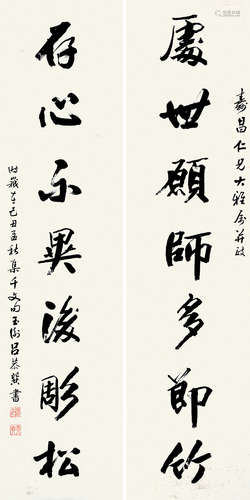 壽昌仁兄大雅屬并政
處世願師多節竹
存心不異後彫松
時歲在己丑孟秋集千文句玉衡呂書